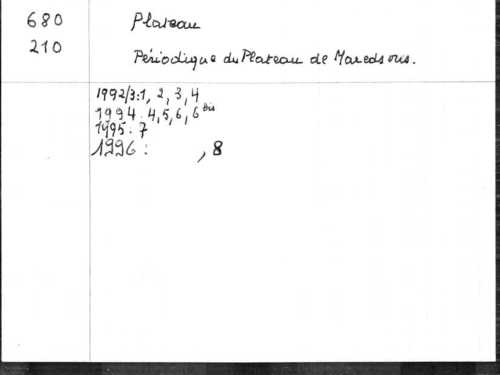 680 Plateau
210 Périodique du Plateau de Maredsous.
1992/3:1, 2, 3, 4
1994: 4, 5, 6, 6 bis
1995: 7
1996: , 8